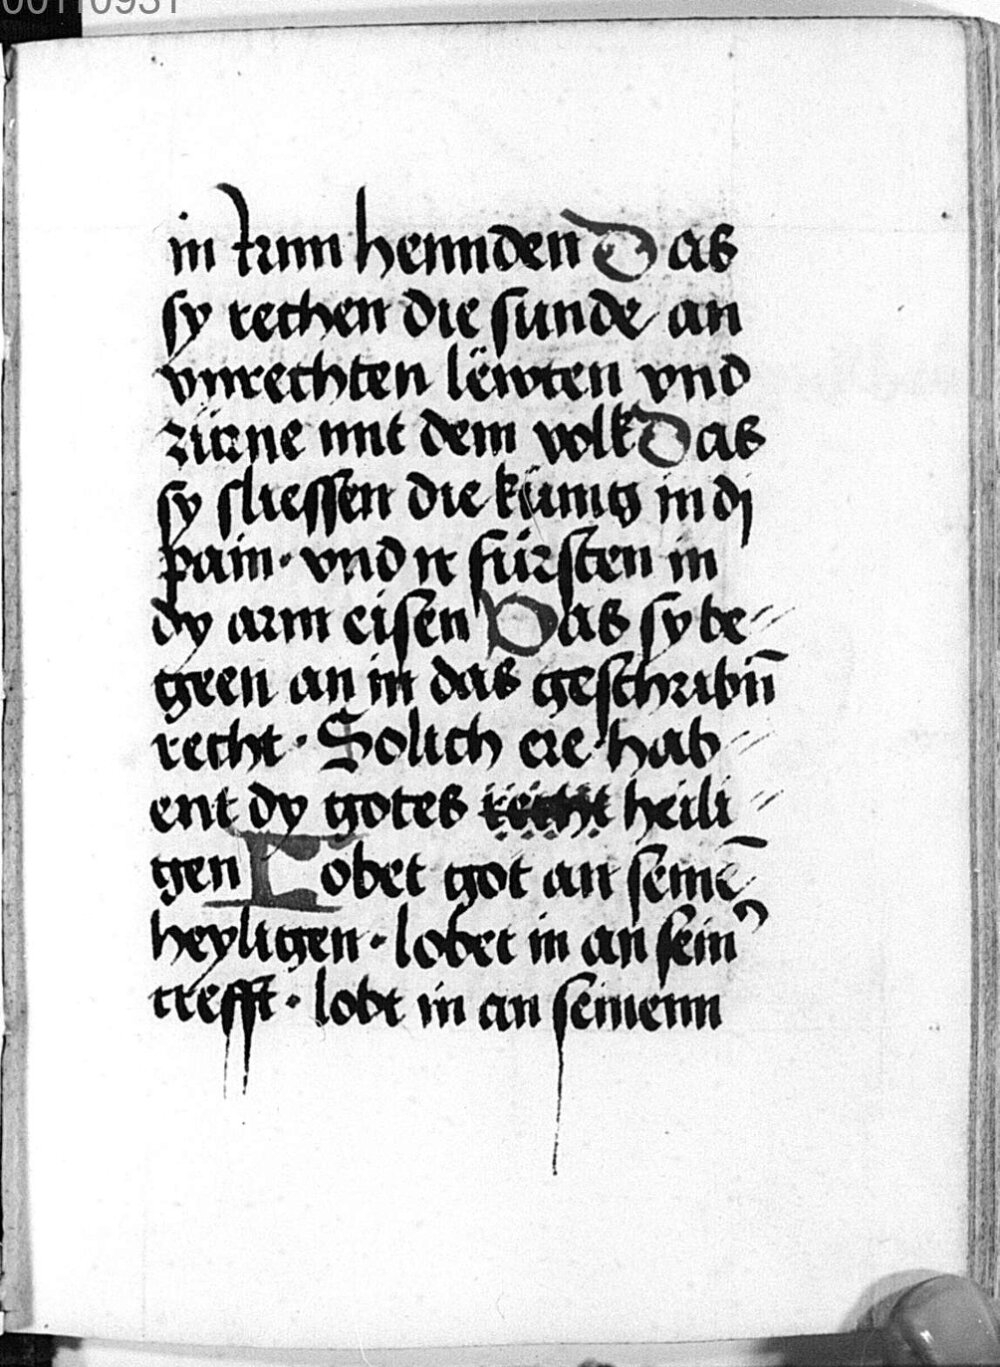 00110931
in irnn hennden Das
sy rechen die sunde an
vnrechten lëwten vnd
zürne mit dem volk Das
sy sliessen die künig in dj
pain · vnd ir fürsten in
dy arm eisen Das sy be⸗
geen an in das geschribn̄
recht · Solich ere hab⸗
ent dy gotes recht heili⸗
gen Lobet got an seinē
heyligen · lobet in an sein᾽
crefft · lobt in an seinenn